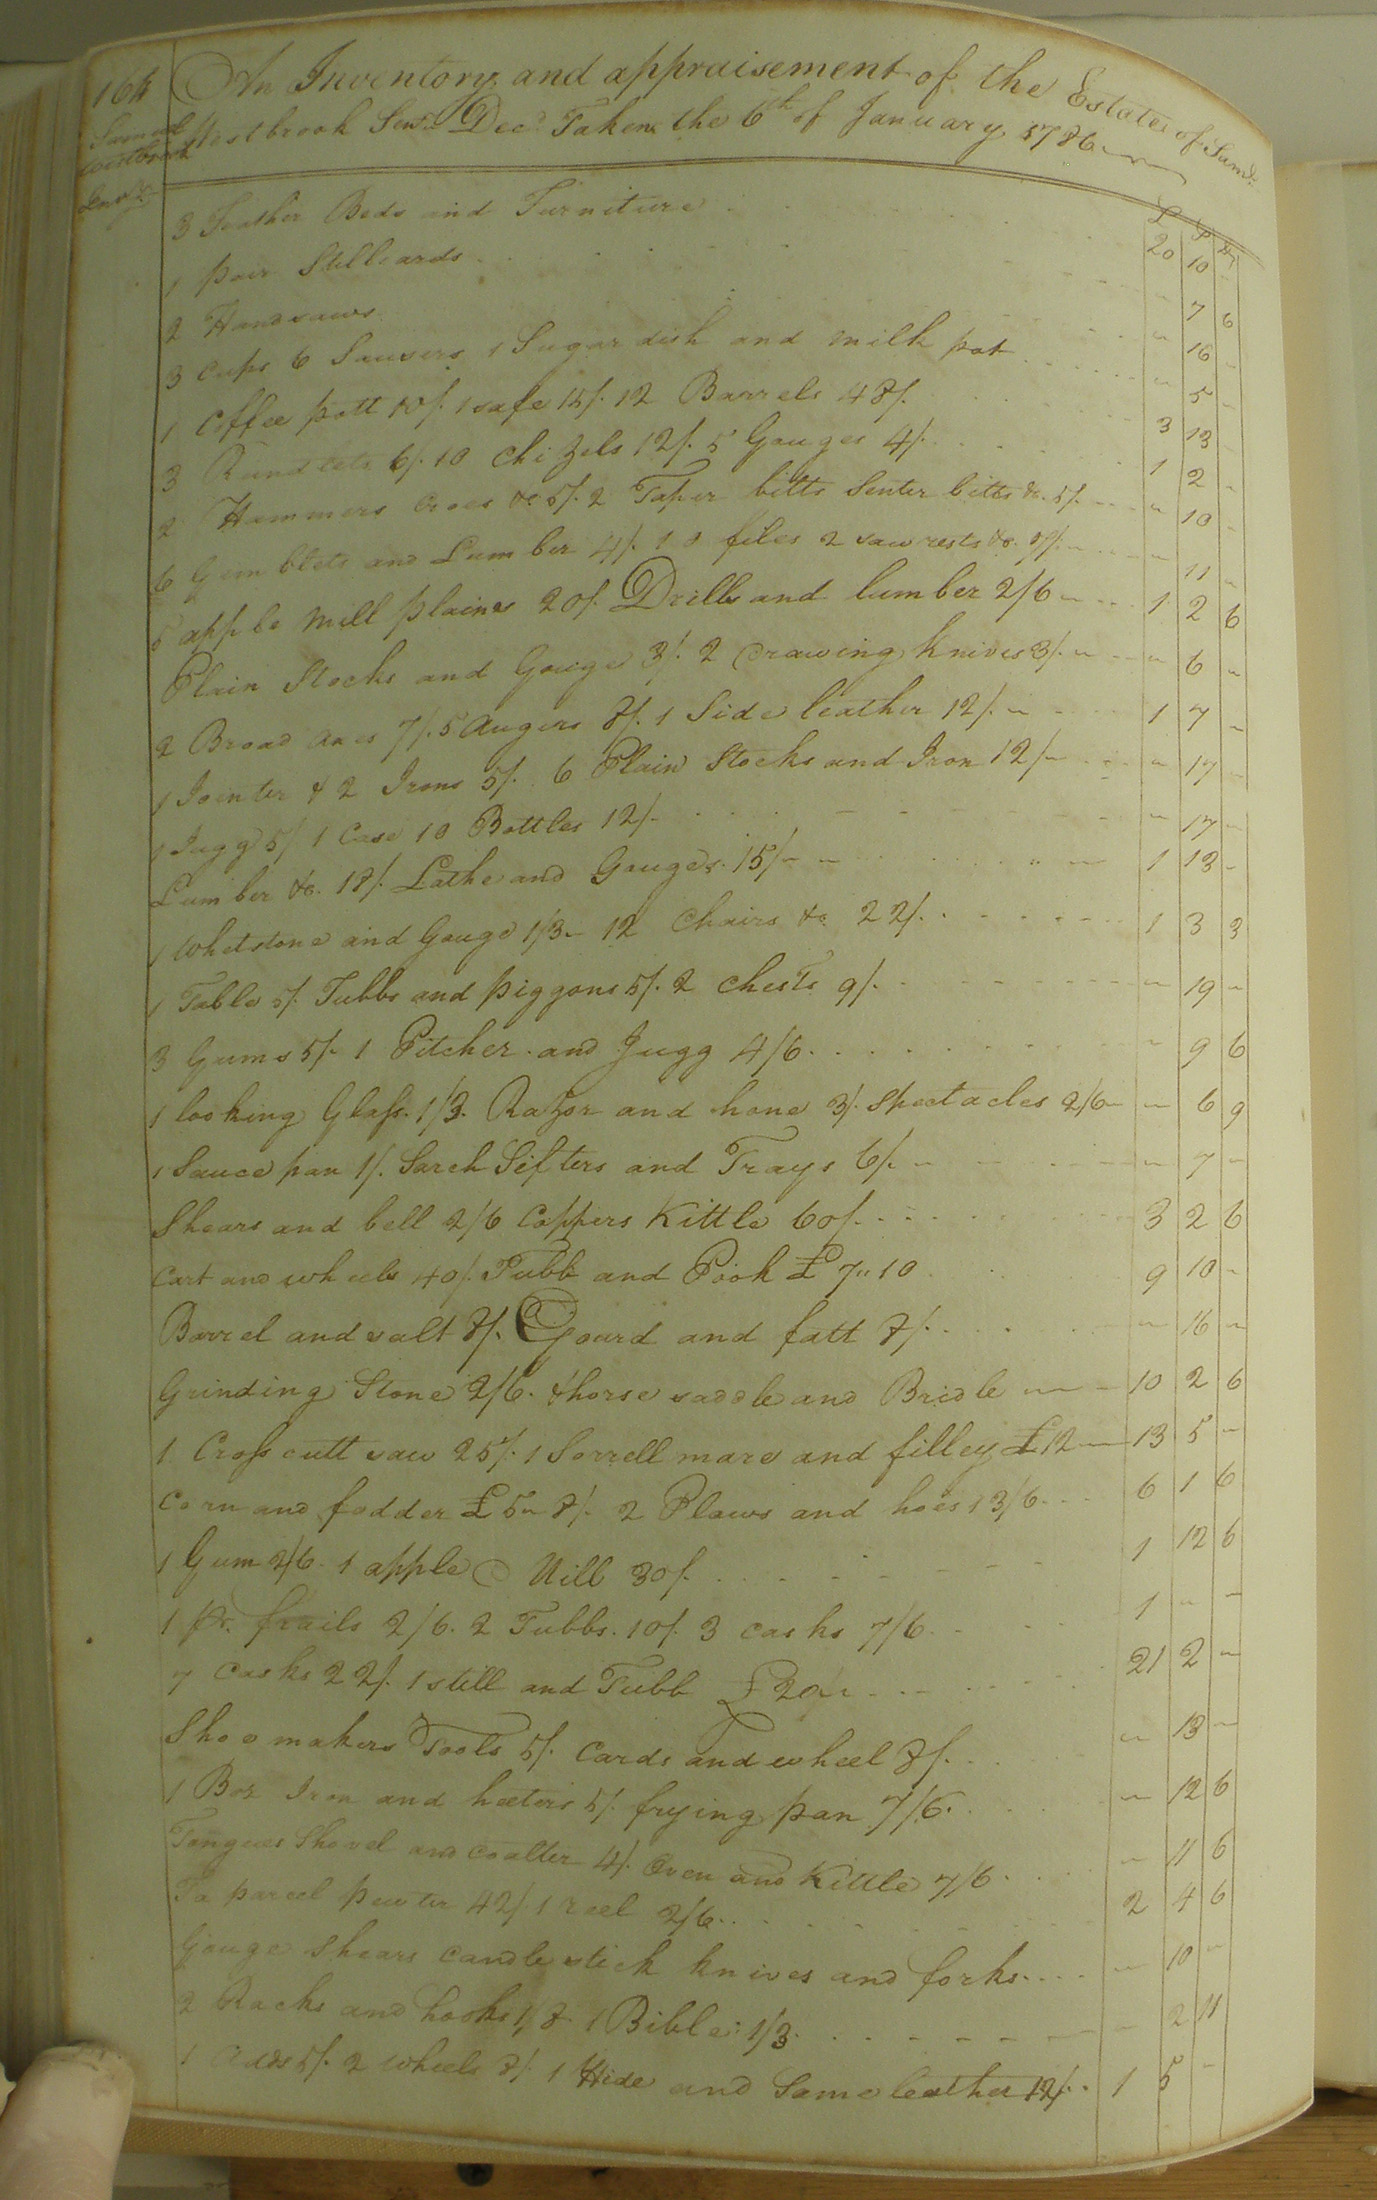 164 An Inventory and appraisement of the Estate of Saml.
Samuel Westbrook Senr. Westbrook Senr. Decd. Taken the 6th of January 1786
L S d
3 Feather Beds and Furniture 20 10 -
1 pair Stilliards 7 6
2 Handsaws " 16 -
3 Cups 6 Sausers 1 Sugar dish and milk pot " 5 -
1 Coffee pott 10/. 1 safe 15/. 12 Barrels 48/. 3 13 -
3 Rundlets 6/. 10 Chizels 12/. 5 Gouges 4/. 1 2 -
2 Hammers Croes &c 5/. 2 Taper bitts Senter bitts &c. 5/. " 10 -
6 Gemblets and Lumber 4/. 10 files 2 saw rests &c. 7/. " 11 "
5 apple Mill plains 20/. Drills and lumber 2/6 1 2 6
Plain Stocks and Gouge 3/. 2 Drawing knives 3/. " 6 "
2 Broad axes 7/. 5 Augers 8/. 1 Side leather 12/. 1 7 "
1 Jointer & 2 Irons 5/. 6 Plain Stocks and Iron 12/ " 17 -
1 Jugg 5/ 1 Case 10 Bottles 12/ " 17 -
Lumber &c. 18/. Lathe and Gouges 15/ 1 13 -
1 Whetstone and Gouge 1/3 12 Chairs &c 22/. 1 3 3
1 Table 5/. Tubbs and piggons 5/. 2 Chests 9/. " 19 "
3 Gums 5/ 1 Pitcher and Jugg 4/6 " 9 6
1 looking Glass. 1/3. Razor and hone 3/. Spectacles 2/6 " 6 9
1 Sauce pan 1/. Sarch Sifters and Trays 6/. " 7 "
Shears and bell 2/6 Coppers Kittle 60/. 3 2 6
Cart and wheels 40/. Tubb and Pook £ 7"10 9 10 -
Barrel and salt 8/. Gourd and fatt 8/. " 16 "
Grinding Stone 2/6. & horse saddle and Bridle 10 2 6
1 Cross cutt saw 25/. 1 Sorrell mare and filley £12 13 5 "
Corn and fodder £5"8/. 2 Plows and hoes 13/6 6 1 6
1 Gum 2/6 1 apple Mill 30/. 1 12 6
1 pr. frails 2/6. 2 Tubbs. 10/. 3 casks 7/6 1 " -
7 Casks 22/. 1 still and Tubb £20" 21 2 "
Shoemakers Tools 5/. Cards and wheel 8/. " 13 -
1 Box Iron and heeters 5/. frying pan 7/6. " 12 6
Tongues Shovel and coalter 4/. Oven and Kittle 7/6 " 11 6
To parcel pewter 42/ 1 reel 2/6 2 4 6
Gouge Shears candlestick knives and forks " 10 -
2 Racks and hooks 1/8. 1 Bible: 1/3 - 2 11
1 adds 5/. 2 wheels 8/. 1 Hide and Some leather 12/. 1 5 -